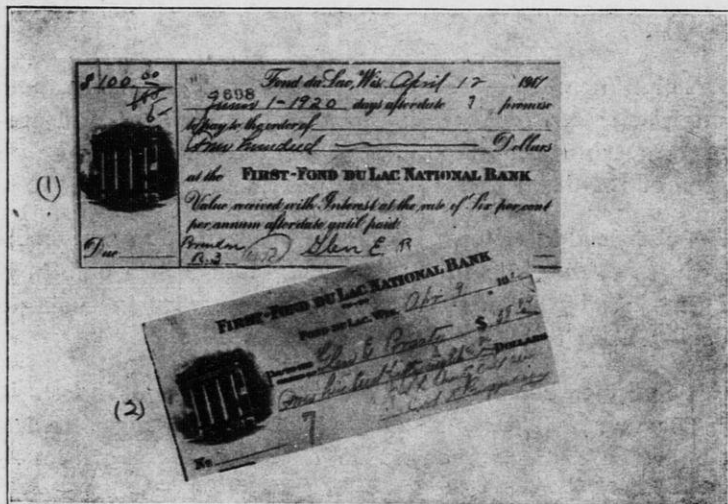 $100 00
Fond du Lac, Wis. April 12 191
4698
June 1-1920 days after date promise
to pay to the order of
One hundred Dollars
at the FIRST-FOND DU LAC NATIONAL BANK
Value received with Interest at the rate of Six per cent
per annum after date until paid
Due
R.3 Glen E R
(1)
FIRST-FOND DU LAC NATIONAL BANK
FOND DU LAC, WIS. Apr 9 191
Glen E $
One hundred DOLLARS
No 7
(2)